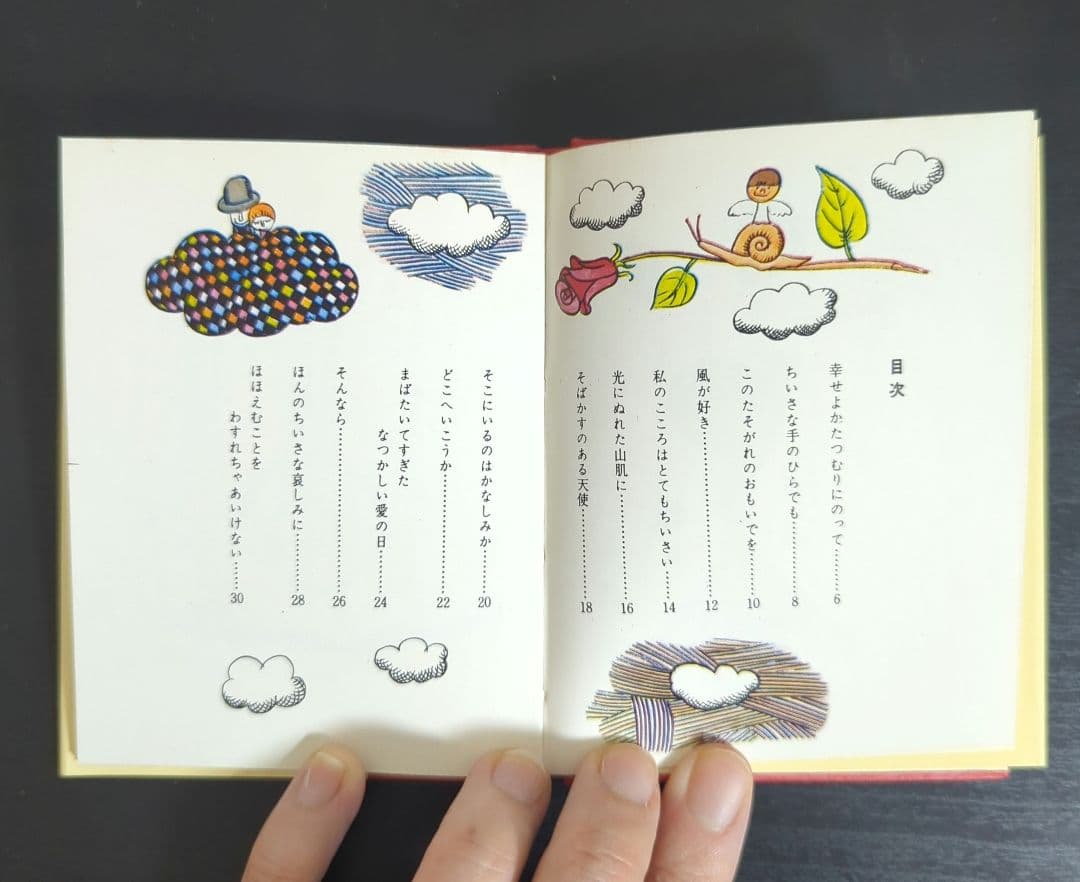 目次
幸せよかたつむりにのって………6
ちいさな手のひらでも…………8
このたそがれのおもいでを………10
風が好き………………………12
私のこころはとてもちいさい……14
光にぬれた山肌に………………16
そばかすのある天使………………18
そこにいるのはかなしみか………20
どこへいこうか…………………22
まばたいてすぎた
なつかしい愛の日………24
そんなら………………………26
ほんのちいさな哀しみに………28
ほほえむことを
わすれちゃあいけない……30